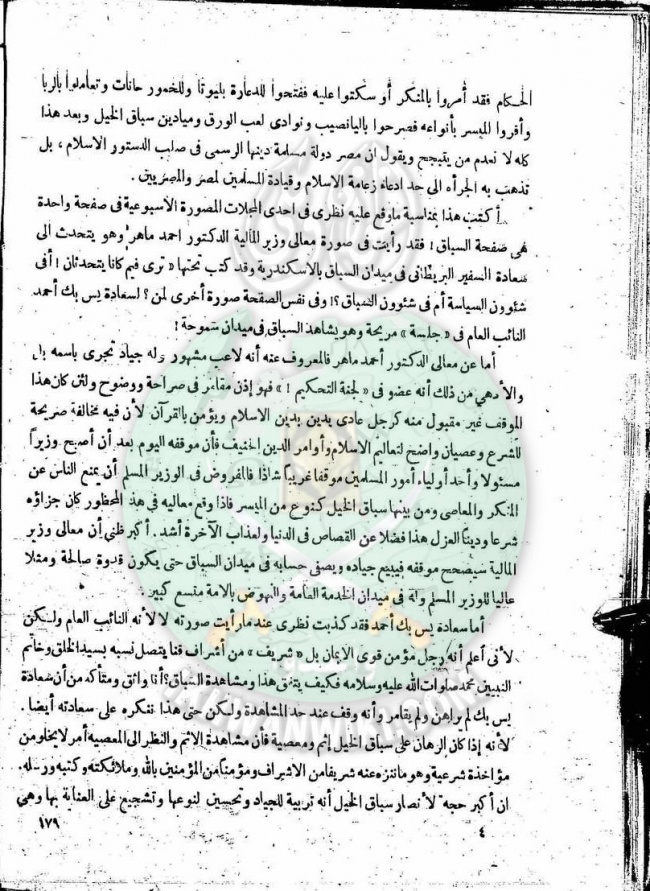 الحكام فقد أمروا بالمنكر أو سكتوا عليه ففتحوا للدعارة بليوتا وللخمور حانات وتعاملوا بالربا
وأقروا الميسر بأنواعه فصرحوا باليانصيب ونوادى لعب الورق وميادين سباق الخيل وبعد هذا
كله لا نعدم من يتبجح ويقول ان مصر دولة مسلمة دينها الرسمى فى صلب الدستور الاسلام ، بل
تذهب به الجرأه الى حد ادعاء زعامة الاسلام وقيادة المسلمين لمصر والمصريين .
أكتب هذا بمناسبة ماوقع عليه نظرى فى احدى المجلات المصورة الأسبوعية فى صفحة واحدة
هى صفحة السباق ! فقد رأيت فى صورة معالى وزير المالية الدكتور احمد ماهر وهو يتحدث الى
سعادة السفير البريطانى فى ميدان السباق بالاسكندرية وقد كتب تحتها « ترى فيم كانا يتحدثان ! أفى
شئوون السياسة أم فى شئوون السباق ؟! وفى نفس الصفحة صورة أخرى لمن ؟ لسعادة يس بك أحمد
النائب العام فى « جلسة » مريحة وهو يشاهد السباق فى ميدان سموحة !
أما عن معالى الدكتور أحمد ماهر فالمعروف عنه أنه لاعب مشهور وله جياد تجرى باسمه بل
والأدهى من ذلك أنه عضو فى « لجنة التحكيم ! » فهو إذن مقامر فى صراحة ووضوح ولئن كان هذا
الموقف غير مقبول منه كرجل عادى يدين بدين الاسلام ويؤمن بالقرآن لأن فيه مخالفة صريحة
للشرع وعصيان واضح لتعاليم الاسلام وأوامر الدين الحنيف فأن موقفه اليوم بعد أن أصبح وزيراً
مسئولا وأحد أولياء أمور المسلمين موقفا غريباً شاذا فالمفروض فى الوزير المسلم أن يمنع الناس عن
المنكر والمعاصى ومن بينها سباق الخيل كنوع من الميسر فاذا وقع معاليه فى هذا المحظور كان جزاؤه
شرعا ودينا العزل هذا فضلا عن القصاص فى الدنيا ولعذاب الآخرة أشد . أكبر ظنى أن معالى وزير
المالية سيصحح موقفه فيبيع جياده ويصفى حسابه فى ميدان السباق حتى يكون قدوة صالحة ومثلا
عاليا للوزير المسلم وله فى ميدان الخدمة العامة والنهوض بالامة متسع كبير
أما سعادة يس بك أحمد فقد كذبت نظرى عند مارأيت صورته لا لأنه النائب العام ولكن
لأنى أعلم أنه رجل مؤمن قوى الايمان بل « شريف » من أشراف قنا يتصل نسبه بسيد الخلق وخاتم
النبيين محمد صلوات الله عليه وسلامه فكيف يتفق هذا ومشاهدة السباق ؟ أنا واثق ومتأكد من أن سعادة
يس بك لم يراهن ولم يقامر وأنه وقف عند حد المشاهدة ولكن حتى هذا ننكره على سعادته أيضا .
لأنه إذا كان الرهان على سباق الخيل إثم ومعصية فأن مشاهدة الاثم والنظر الى المعصية أمر لا يخلو من
مؤاخذة شرعية وهو ماننزه عنه شريفا من الاشراف ومؤمنا من المؤمنين بالله وملائكته وكتبه ورسله .
ان أكبر حجة لأنصار سباق الخيل أنه تربية للجياد وتحسين لنوعها وتشجيع على العناية بها وهى
٤
١٧٩